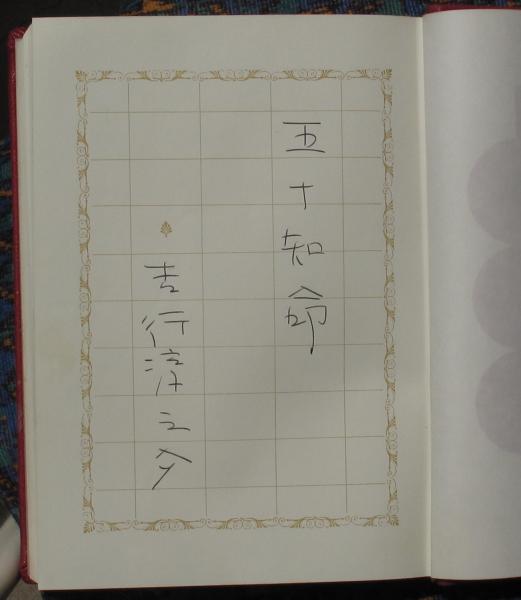 五十知命
吉行淳之介